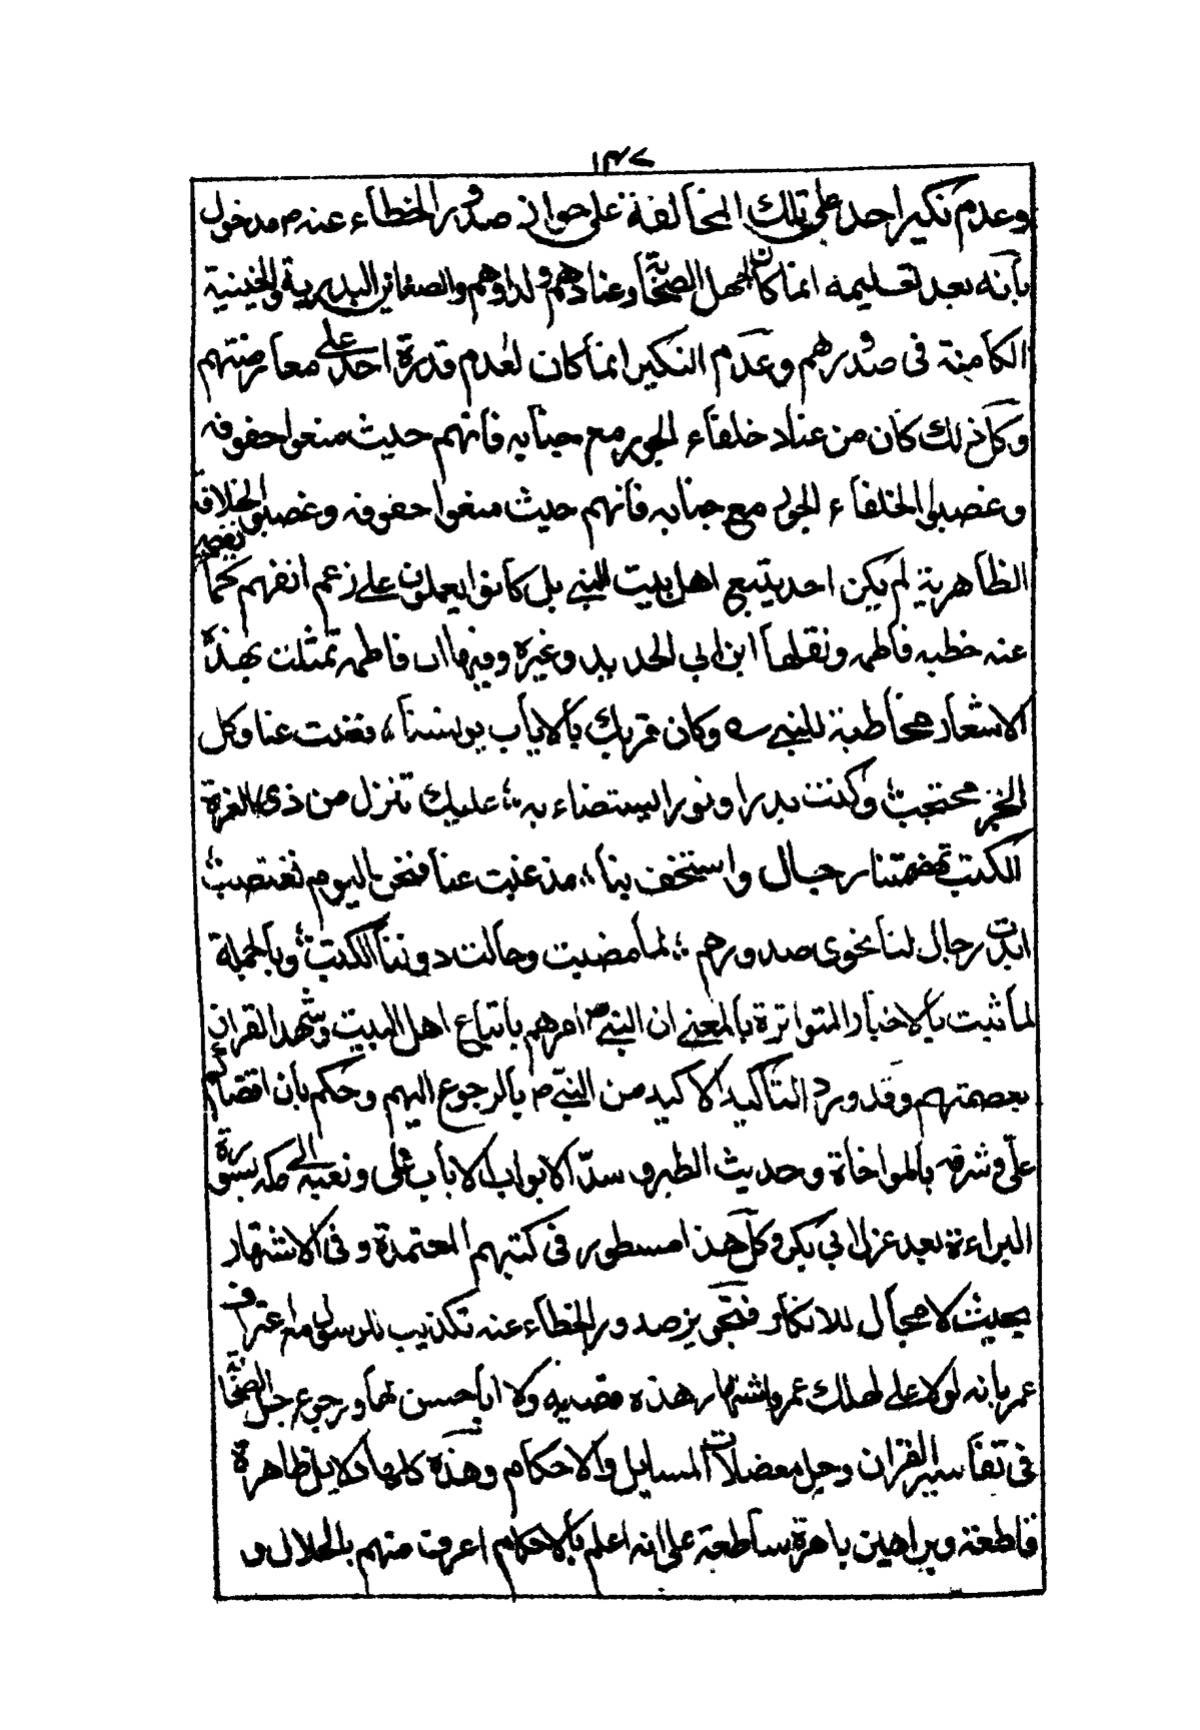 ١٣٧
وعدم نكير احد على تلك المخالفة على جواز صدور الخطاء عنه م مدخول
بأنه بعد تسليمه انما كان لجهل الصحابة وعنادهم ولدادهم والضغائن البدرية والحنينية
الكامنة فى صدورهم وعدم النكير انما كان لعدم قدرة احد على معارضتهم
وكل ذلك كان من عناد خلفاء الجور مع جنابه فانهم حيث منعوا حقوقه
وغصبوا الخلفاء الجور مع جنابه فانهم حيث منعوا حقوقه وغصبوا الخلافة
الظاهرية لم يكن احد يتبع اهل بيت النبى بل كانوا يعملون على زعم انفهم كما
عنه خطبه فاطمه ونقلها ابن ابى الحديد وغيره وفيها ان فاطمه تمثلت بهذه
الاشعار مخاطبة للنبى ص وكان قربك بالايات يونسنا ؛ فغبت عنا وكل
الخير محتجب ؛ وكنت بدرا ونورا يستضاء به ؛ عليك تنزل من ذى العزة
الكتب تهضمتنا رجال واستخف بنا ؛ مذ غبت عنا فنحن اليوم نغتصب ؛
ابدت رجال لنا نجوى صدورهم ؛ لما مضيت وحالت دوننا الكتب ؛ وبالجملة
لما ثبت بالاخبار المتواترة بالمعنى ان النبى ص امرهم باتباع اهل البيت وشهد القران
بعصمتهم وقد ورد التأكيد الاكيد من النبى م بالرجوع اليهم وحكم بان اقضاكم
على وشرفه بالمواخاة وحديث الطير و سد الابواب الا باب على وبعثه الى مكه بسورة
البراءة بعد عزل ابى بكر وكل هذا مسطور فى كتبهم المعتمدة وفى الاشتهار
بحيث لا مجال للانكار فتجويز صدور الخطاء عنه تكذيب للرسول مع اعتراف
عمر بانه لولا على لهلك عمر واشتهار هذه قضيه ولا ابا حسن لها ورجوع جل الصحابة
فى تفاسير القران وحل معضلات المسايل والاحكام وهذه كلها دلايل ظاهرة
قاطعة وبراهين باهرة ساطعة على انه اعلم بالاحكام اعرف منهم بالحلال و